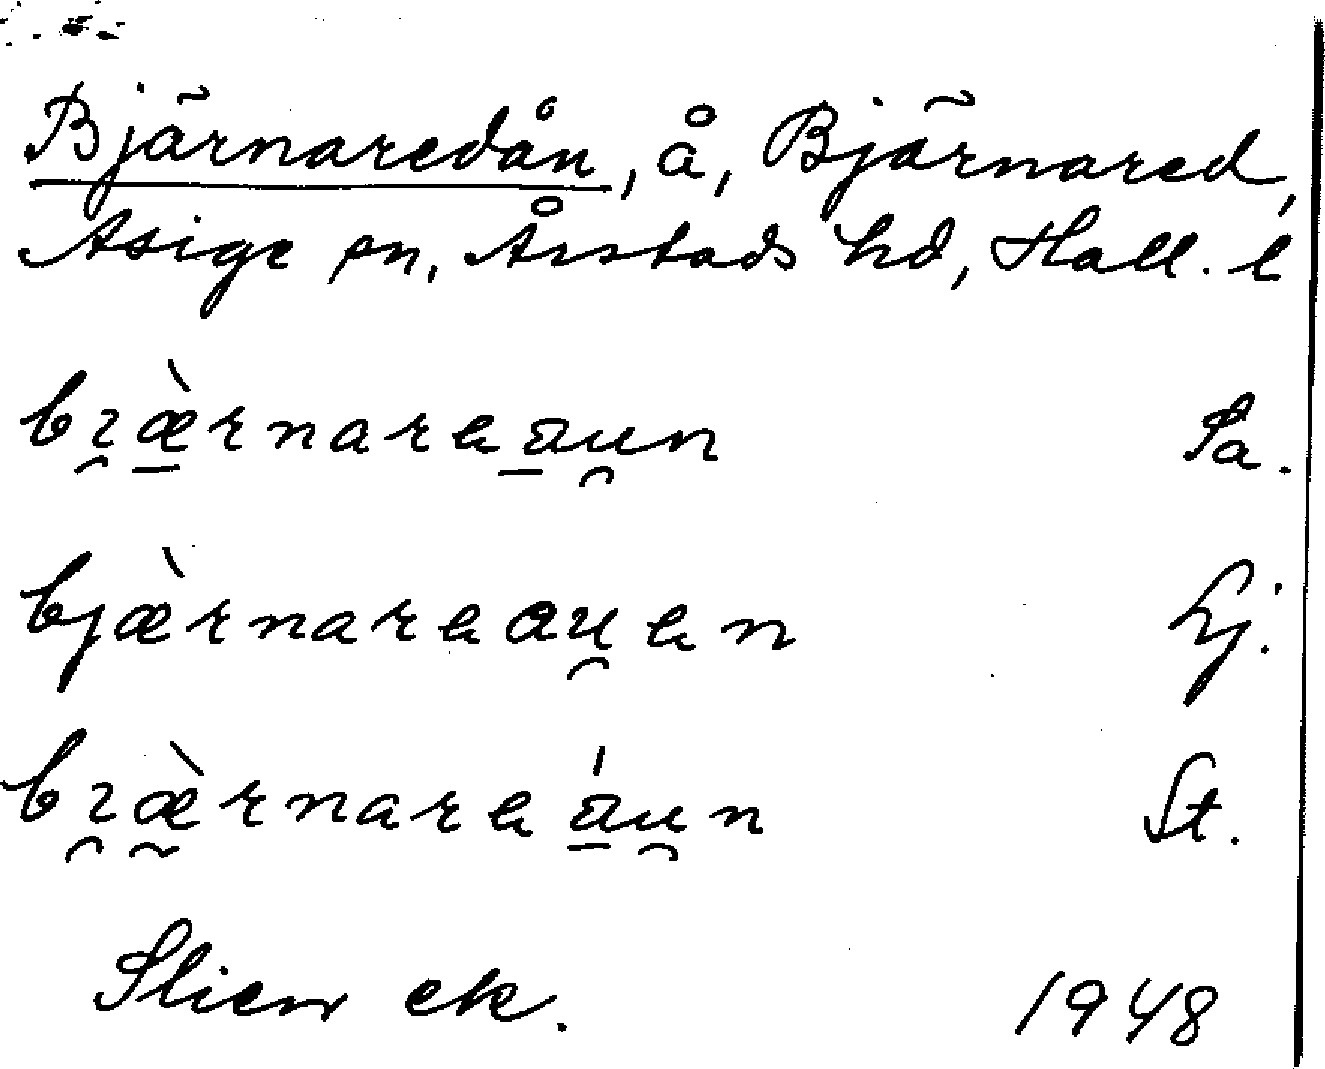 Bjärnaredån, å, Bjärnared,
Asige sn, Årstads hd, Hall. l
bɪ̯æ̱̀rnarea̱u̯n Pa.
bjæ̀rnareau̯en Lj.
bɪ̯æ̰̀rnareá̱u̯n St.
ek. 1948